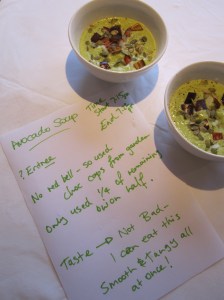 Avocado Soup
? Entree
No red bell - so used
choc caps from garden.
Only used 1/4 of remaining
onion half.
Taste → Not Bad-
I can eat this
Smooth & Tangy all
at once!